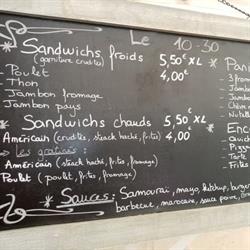 Le 10-30
Sandwichs froids 5,50€ XL
(garniture crudités) 4,00€
- Poulet
- Thon
- Jambon fromage
- Jambon pays
Sandwichs chauds 5,50€ XL
Américain (crudités, steack haché, frites) 4,00€
→ les gratinés:
Américain (steack haché, frites, fromage)
Poulet (poulet, frites, fromage)
Sauces: Samouraï, mayo, ketchup, burger
barbecue, marocaine, sauce poivre
3 from
Jamb
Jamb
Chèvre
Nutella
Quich
Pizz
Tarte
Frites